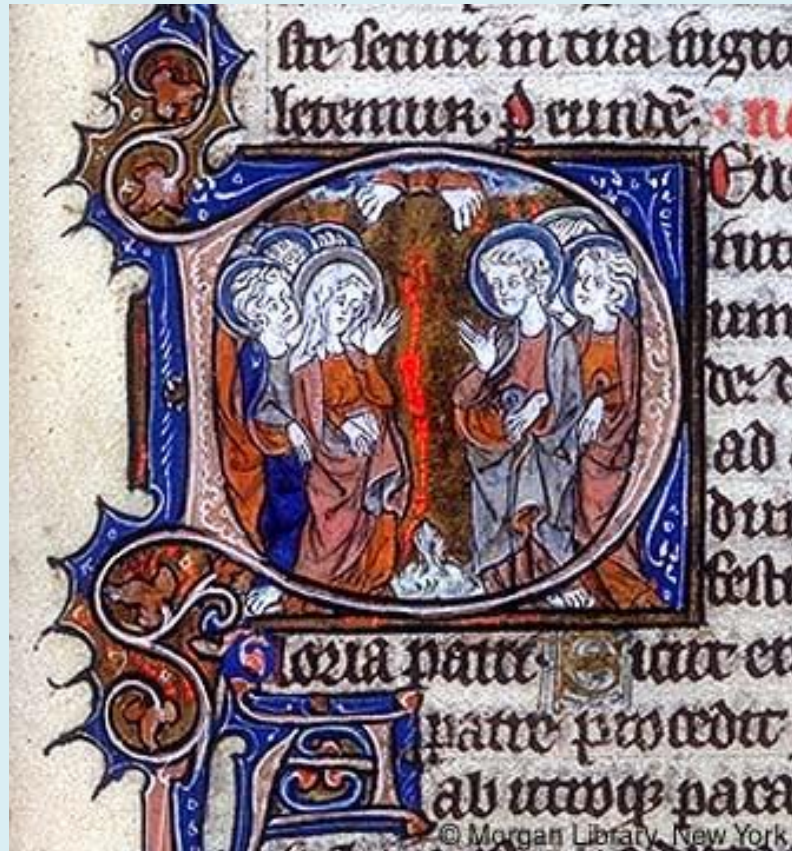 ste securi in tua iugit
letemur. p eundē. no
D Eus
iutt
um
de: d
ad a
dun
festi
Gloria patri. Sicut et
A patre procedit
ab utroq; para
© Morgan Library, New York